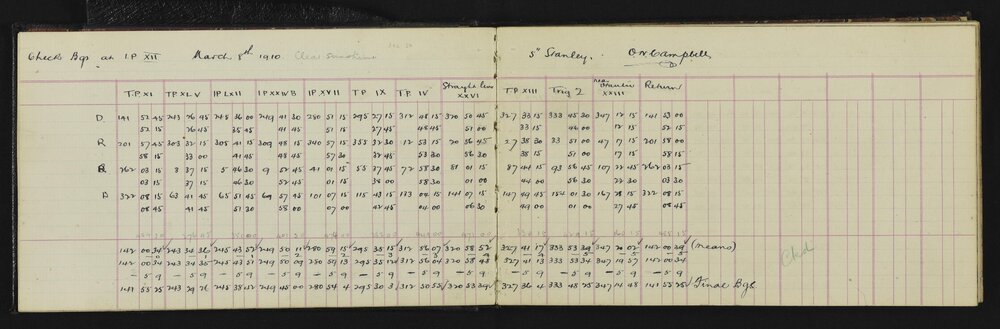 Check Bgs at I.P. XII March 8th 1910 Clear Sunshine 5" Stanley. O.W. Campbell
T.P. XI T.P. XLV I.P. LXII I.P. XXIV B I.P. XVII T.P. IX T.P. IV Straight line XXVI T.P. XIII Trig 2 XXIII Return
D. 141 52 45 243 26 45 245 36 00 249 41 30 280 51 15 295 27 15 312 48 15 320 50 45 327 33 15 333 45 30 347 12 15 141 53 00
52 15 26 45 35 45 41 45 51 15 27 45 48 45 51 00 33 15 46 00 12 15 52 15
R 201 57 45 303 32 15 305 41 15 309 48 15 340 57 15 355 32 30 12 53 15 20 56 45 27 38 30 33 51 00 47 17 15 201 58 00
58 15 33 00 41 45 48 45 57 30 32 45 53 30 56 30 38 15 51 00 17 15 58 15
R 262 03 15 3 37 15 5 46 30 9 52 45 41 01 15 55 37 45 72 58 30 81 01 15 87 44 15 93 56 45 107 22 45 262 03 15
03 15 37 15 46 30 52 45 01 15 38 00 58 30 01 00 44 00 56 30 22 30 03 30
D 322 08 15 63 41 45 65 51 45 69 57 45 101 07 15 115 43 15 133 04 15 141 07 15 147 49 45 154 01 30 167 28 15 322 08 15
08 45 41 45 51 30 58 00 07 00 42 45 04 00 06 30 49 00 01 00 27 45 08 45
142 00 34 243 34 36 245 43 52 249 50 11 280 59 15 295 35 15 312 56 07 320 58 52 327 41 17 333 53 39 347 20 02 142 00 39 (means)
142 00 34 243 34 35 245 43 51 249 50 09 280 59 13 295 35 12 312 56 04 320 58 48 327 41 13 333 53 34 347 19 57 142 00 34
– 5 9 – 5 9 – 5 9 – 5 9 – 5 9 – 5 9 – 5 9 – 5 9 – 5 9 – 5 9 – 5 9 – 5 9
141 55 25 243 29 26 245 38 42 249 45 00 280 54 4 295 30 3 312 50 55 320 53 39 327 36 4 333 48 25 347 14 48 141 55 25 Final Bgs
Ckd